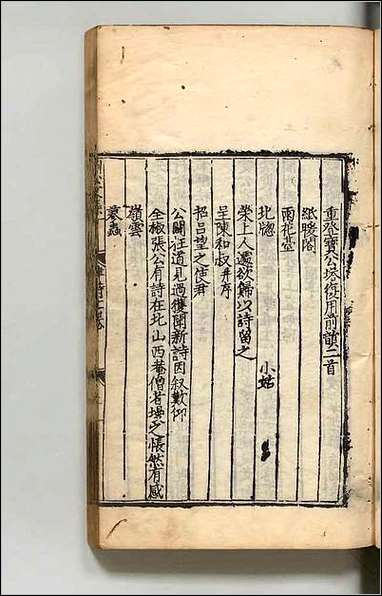 重登寶公塔復用前韻二首
紙暖閣
雨花臺
北牎　小姑
榮上人遽欲歸以詩留之
呈陳和叔并序
招呂望之使君
公闢枉道見過獲聞新詩因叙歎仰
全椒張公有詩在北山西菴僧者墁之悵然有感
嶺雲